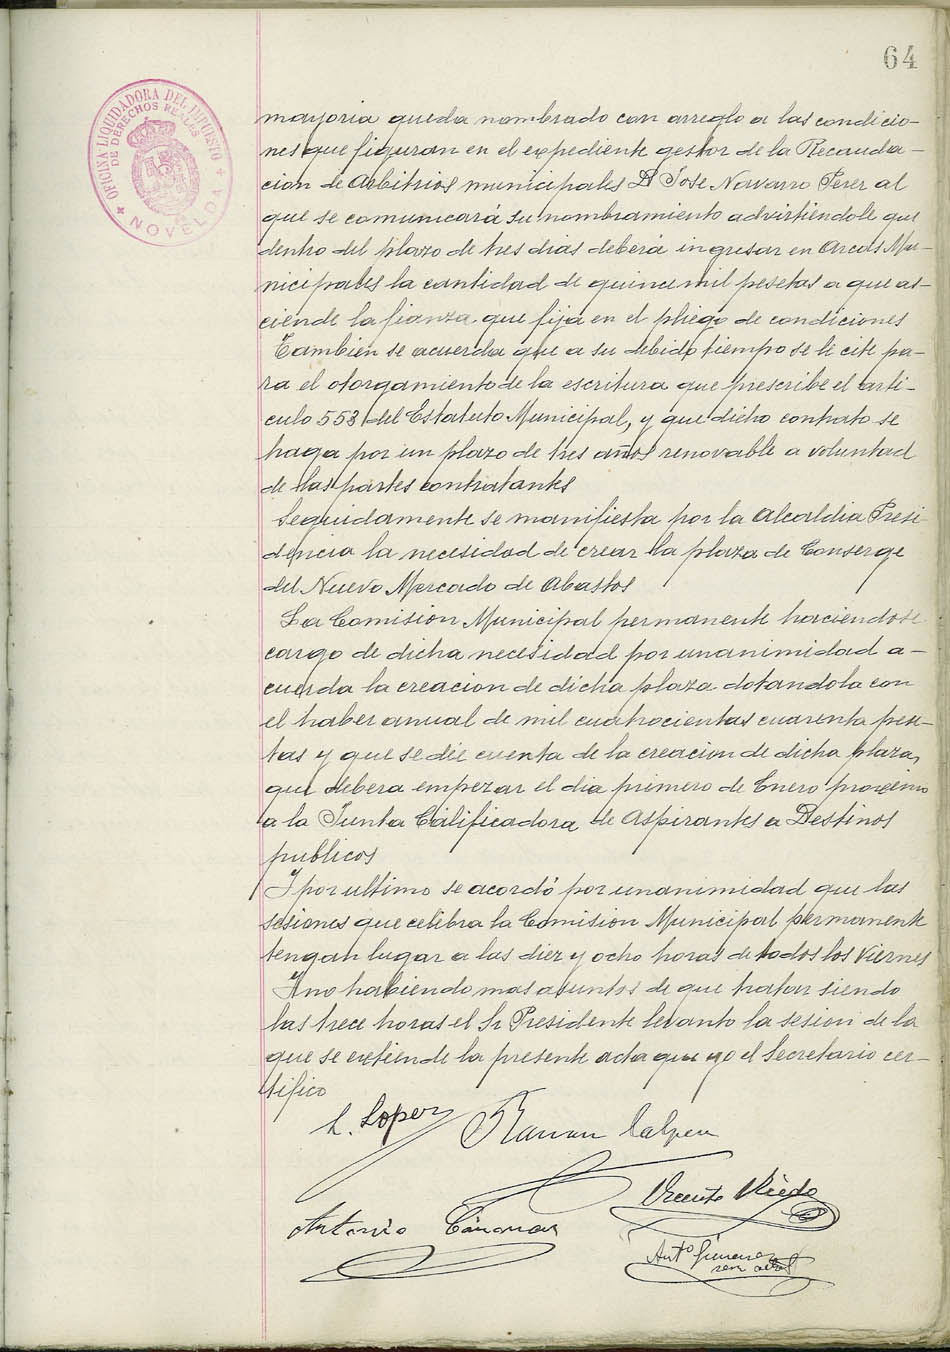 64
OFICINA LIQUIDADORA DEL IMPUESTO
DE DERECHOS REALES
NOVELDA
mayoria queda nombrado con arreglo a las condicio-
nes que figuran en el expediente gestor de la Recauda-
cion de Arbitrios municipales D Jose Navarro Perer al
que se comunicará su nombramiento advirtiendole que
dentro del plazo de tres dias deberá ingresar en Arcas Mu-
nicipales la cantidad de quince mil pesetas a que as-
ciende la fianza que fija en el pliego de condiciones
Tambien se acuerda que a su debido tiempo se le cite pa-
ra el otorgamiento de la escritura que prescribe el arti-
culo 553 del Estatuto Municipal, y que dicho contrato se
haga por un plazo de tres años renovable a voluntad
de las partes contratantes
Seguidamente se manifiesta por la Alcaldia Presi-
dencia la necesidad de crear la plaza de Conserge
del Nuevo Mercado de Abastos
La Comision Municipal permanente haciendose
cargo de dicha necesidad por unanimidad a-
cuerda la creacion de dicha plaza dotandola con
el haber anual de mil cuatrocientas cuarenta pese-
tas y que se die cuenta de la creacion de dicha plaza,
que debera empezar el dia primero de Enero proximo
a la Junta Calificadora de Aspirantes a Destinos
publicos
Y por ultimo se acordó por unanimidad que las
sesiones que celebra la Comision Municipal permanente
tengan lugar a las diez y ocho horas de todos los Viernes
Y no habiendo mas asuntos de que tratar siendo
las trece horas el Sr Presidente levanto la sesion de la
que se extiende la presente acta que yo el Secretario cer-
tifico
L. Lopez
Ramon Calpena
Vicente
Antonio Cánovas
Antº Gimenez